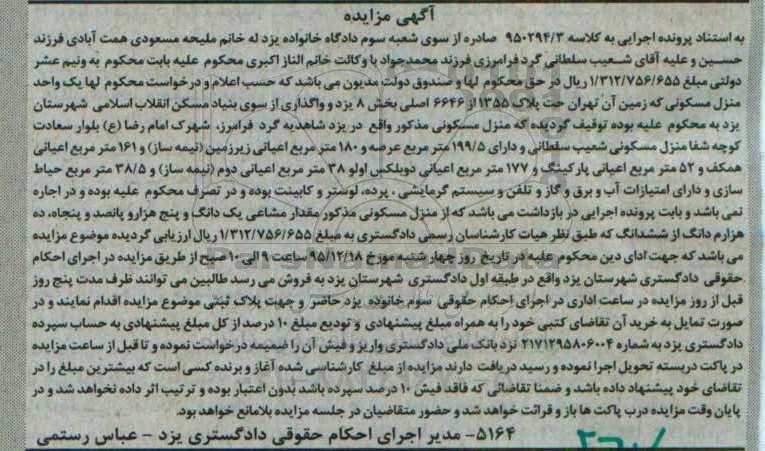 آگهی مزایده
به استناد پرونده اجرایی به کلاسه ۹۵۰۲۹۴/۳ صادره از سوی شعبه سوم دادگاه خانواده یزد له خانم ملیحه مسعودی همت آبادی فرزند
حسین و علیه آقای شعیب سلطانی گرد فرامرزی فرزند محمدجواد با وکالت خانم الناز اکبری محکوم علیه بابت محکوم به ونیم عشر
دولتی مبلغ ۱/۳۱۲/۷۵۶/۶۵۵ ریال در حق محکوم لها و صندوق دولت مدیون می باشد که حسب اعلام و درخواست محکوم لها یک واحد
منزل مسکونی که زمین آن تهران تحت پلاک ۱۳۵۵ از ۶۶۴۶ اصلی بخش ۸ یزد و واگذاری از سوی بنیاد مسکن انقلاب اسلامی شهرستان
یزد به محکوم علیه بوده توقیف گردیده که منزل مسکونی مذکور واقع در یزد شاهدیه گرد فرامرز، شهرک امام رضا (ع) بلوار سعادت
کوچه شفا منزل مسکونی شعیب سلطانی و دارای ۱۹۹/۵ متر مربع عرصه و ۱۸۰ متر مربع اعیانی زیرزمین (نیمه ساز) و ۱۶۱ متر مربع اعیانی
همکف و ۵۲ متر مربع اعیانی پارکینگ و ۱۷۷ متر مربع اعیانی دوبلکس اولو ۳۸ متر مربع اعیانی دوم (نیمه ساز) و ۳۸/۵ متر مربع حیاط
سازی و دارای امتیازات آب و برق و گاز و تلفن و سیستم گرمایشی ، پرده، لوستر و کابینت بوده و در تصرف محکوم علیه بوده و در اجاره
نمی باشد و بابت پرونده اجرایی در بازداشت می باشد که از منزل مسکونی مذکور مقدار مشاعی یک دانگ و پنج هزارو پانصد و پنجاه، ده
هزارم دانگ از ششدانگ که طبق نظر هیات کارشناسان رسمی دادگستری به مبلغ ۱/۳۱۲/۷۵۶/۶۵۵ ریال ارزیابی گردیده موضوع مزایده
می باشد که جهت ادای دین محکوم علیه در تاریخ روز چهارشنبه مورخ ۹۵/۱۲/۱۸ ساعت ۹ الی ۱۰ صبح از طریق مزایده در اجرای احکام
حقوقی دادگستری شهرستان یزد واقع در طبقه اول دادگستری شهرستان یزد به فروش می رسد طالبین می توانند ظرف مدت پنج روز
قبل از روز مزایده در ساعت اداری در اجرای احکام حقوقی سوم خانواده یزد حاضر و جهت پلاک ثبتی موضوع مزایده اقدام نمایند و در
صورت تمایل به خرید آن تقاضای کتبی خود را به همراه مبلغ پیشنهادی و تودیع مبلغ ۱۰ درصد از کل مبلغ پیشنهادی به حساب سپرده
دادگستری یزد به شماره ۲۱۷۱۲۹۵۸۰۶۰۰۴ نزد بانک ملی دادگستری واریز و فیش آن را ضمیمه درخواست نموده و تا قبل از ساعت مزایده
در پاکت دربسته تحویل اجرا نموده و رسید دریافت دارند مزایده از مبلغ کارشناسی شده آغاز و برنده کسی است که بیشترین مبلغ را در
تقاضای خود پیشنهاد داده باشد و ضمنا تقاضائی که فاقد فیش ۱۰ درصد سپرده باشد بدون اعتبار بوده و ترتیب اثر داده نخواهد شد و در
پایان وقت مزایده درب پاکت ها باز و قرائت خواهد شد و حضور متقاضیان در جلسه مزایده بلامانع خواهد بود.
۵۱۶۴- مدیر اجرای احکام حقوقی دادگستری یزد - عباس رستمی